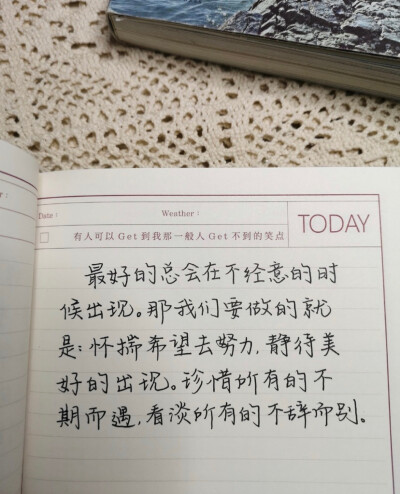 Date：
Weather：
TODAY
有人可以Get到我那一般人Get不到的笑点
最好的总会在不经意的时
候出现。那我们要做的就
是：怀揣希望去努力，静待美
好的出现。珍惜所有的不
期而遇，看淡所有的不辞而别。